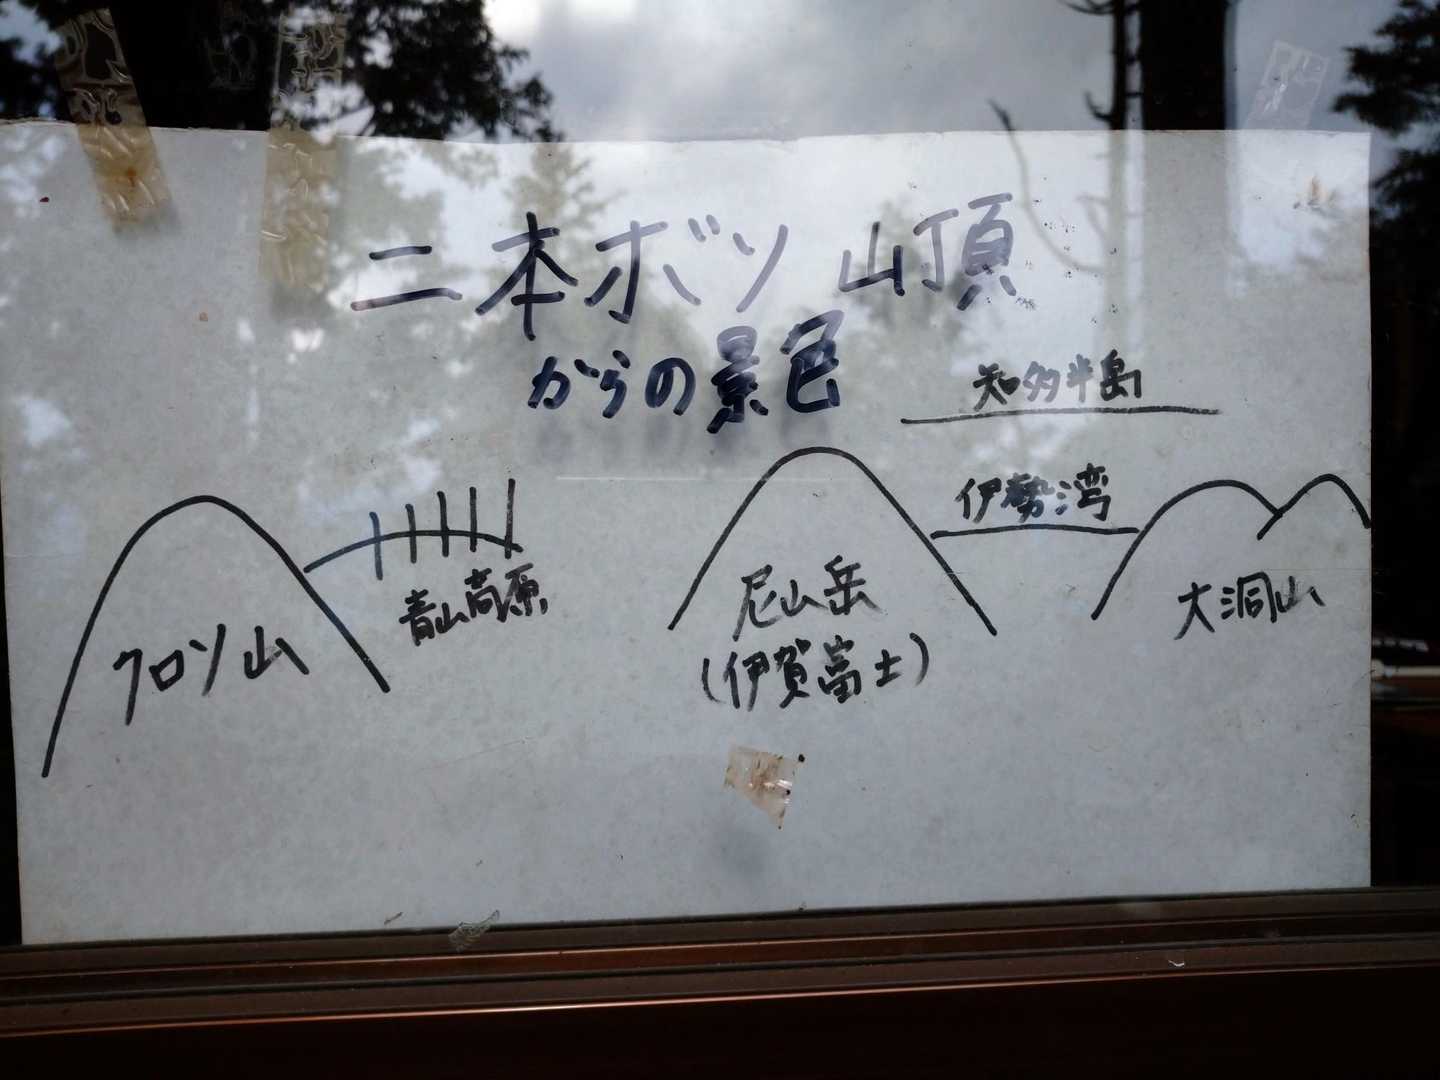 二本ボソ山頂
からの景色
知多半島
伊勢湾
青山高原
クロソ山
尼山岳
(伊賀富士)
大洞山